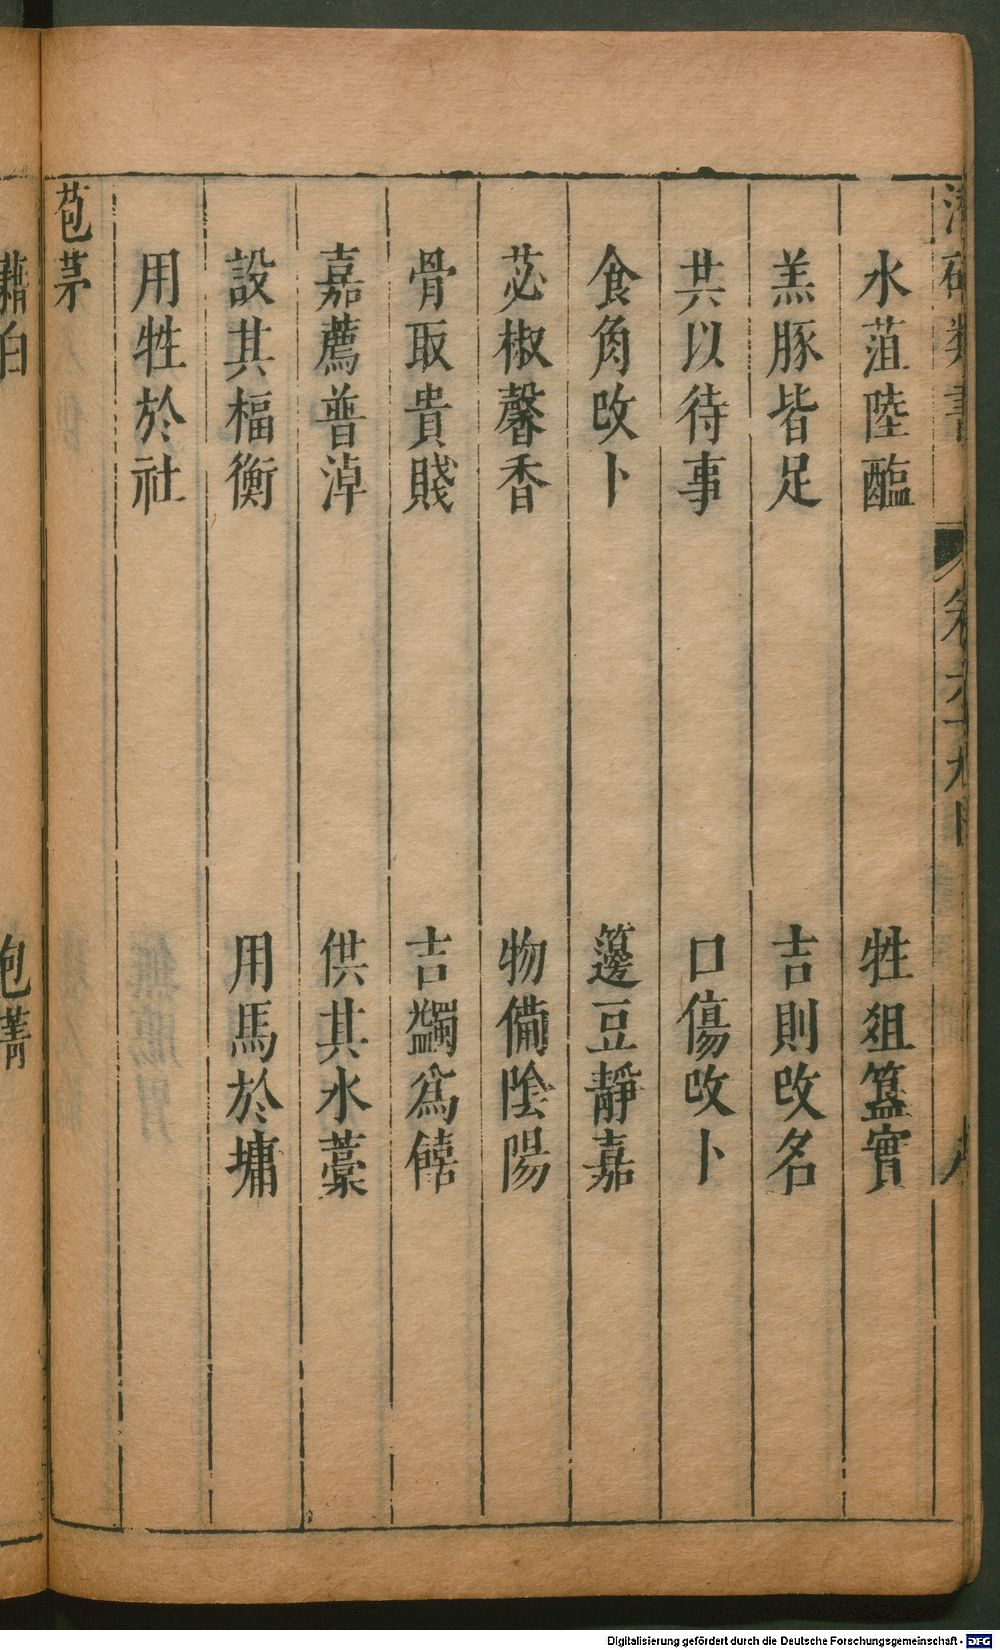 水菹陸醢
牲俎簋實
羔豚皆足
吉則改名
共以待事
口傷改卜
食角改卜
籩豆靜嘉
苾椒馨香
物備陰陽
骨取貴賤
吉蠲爲饎
嘉薦普淖
供其水藁
設其楅衡
用馬於墉
用牲於社
苞茅
Digitalisierung gefördert durch die Deutsche Forschungsgemeinschaft - DFG